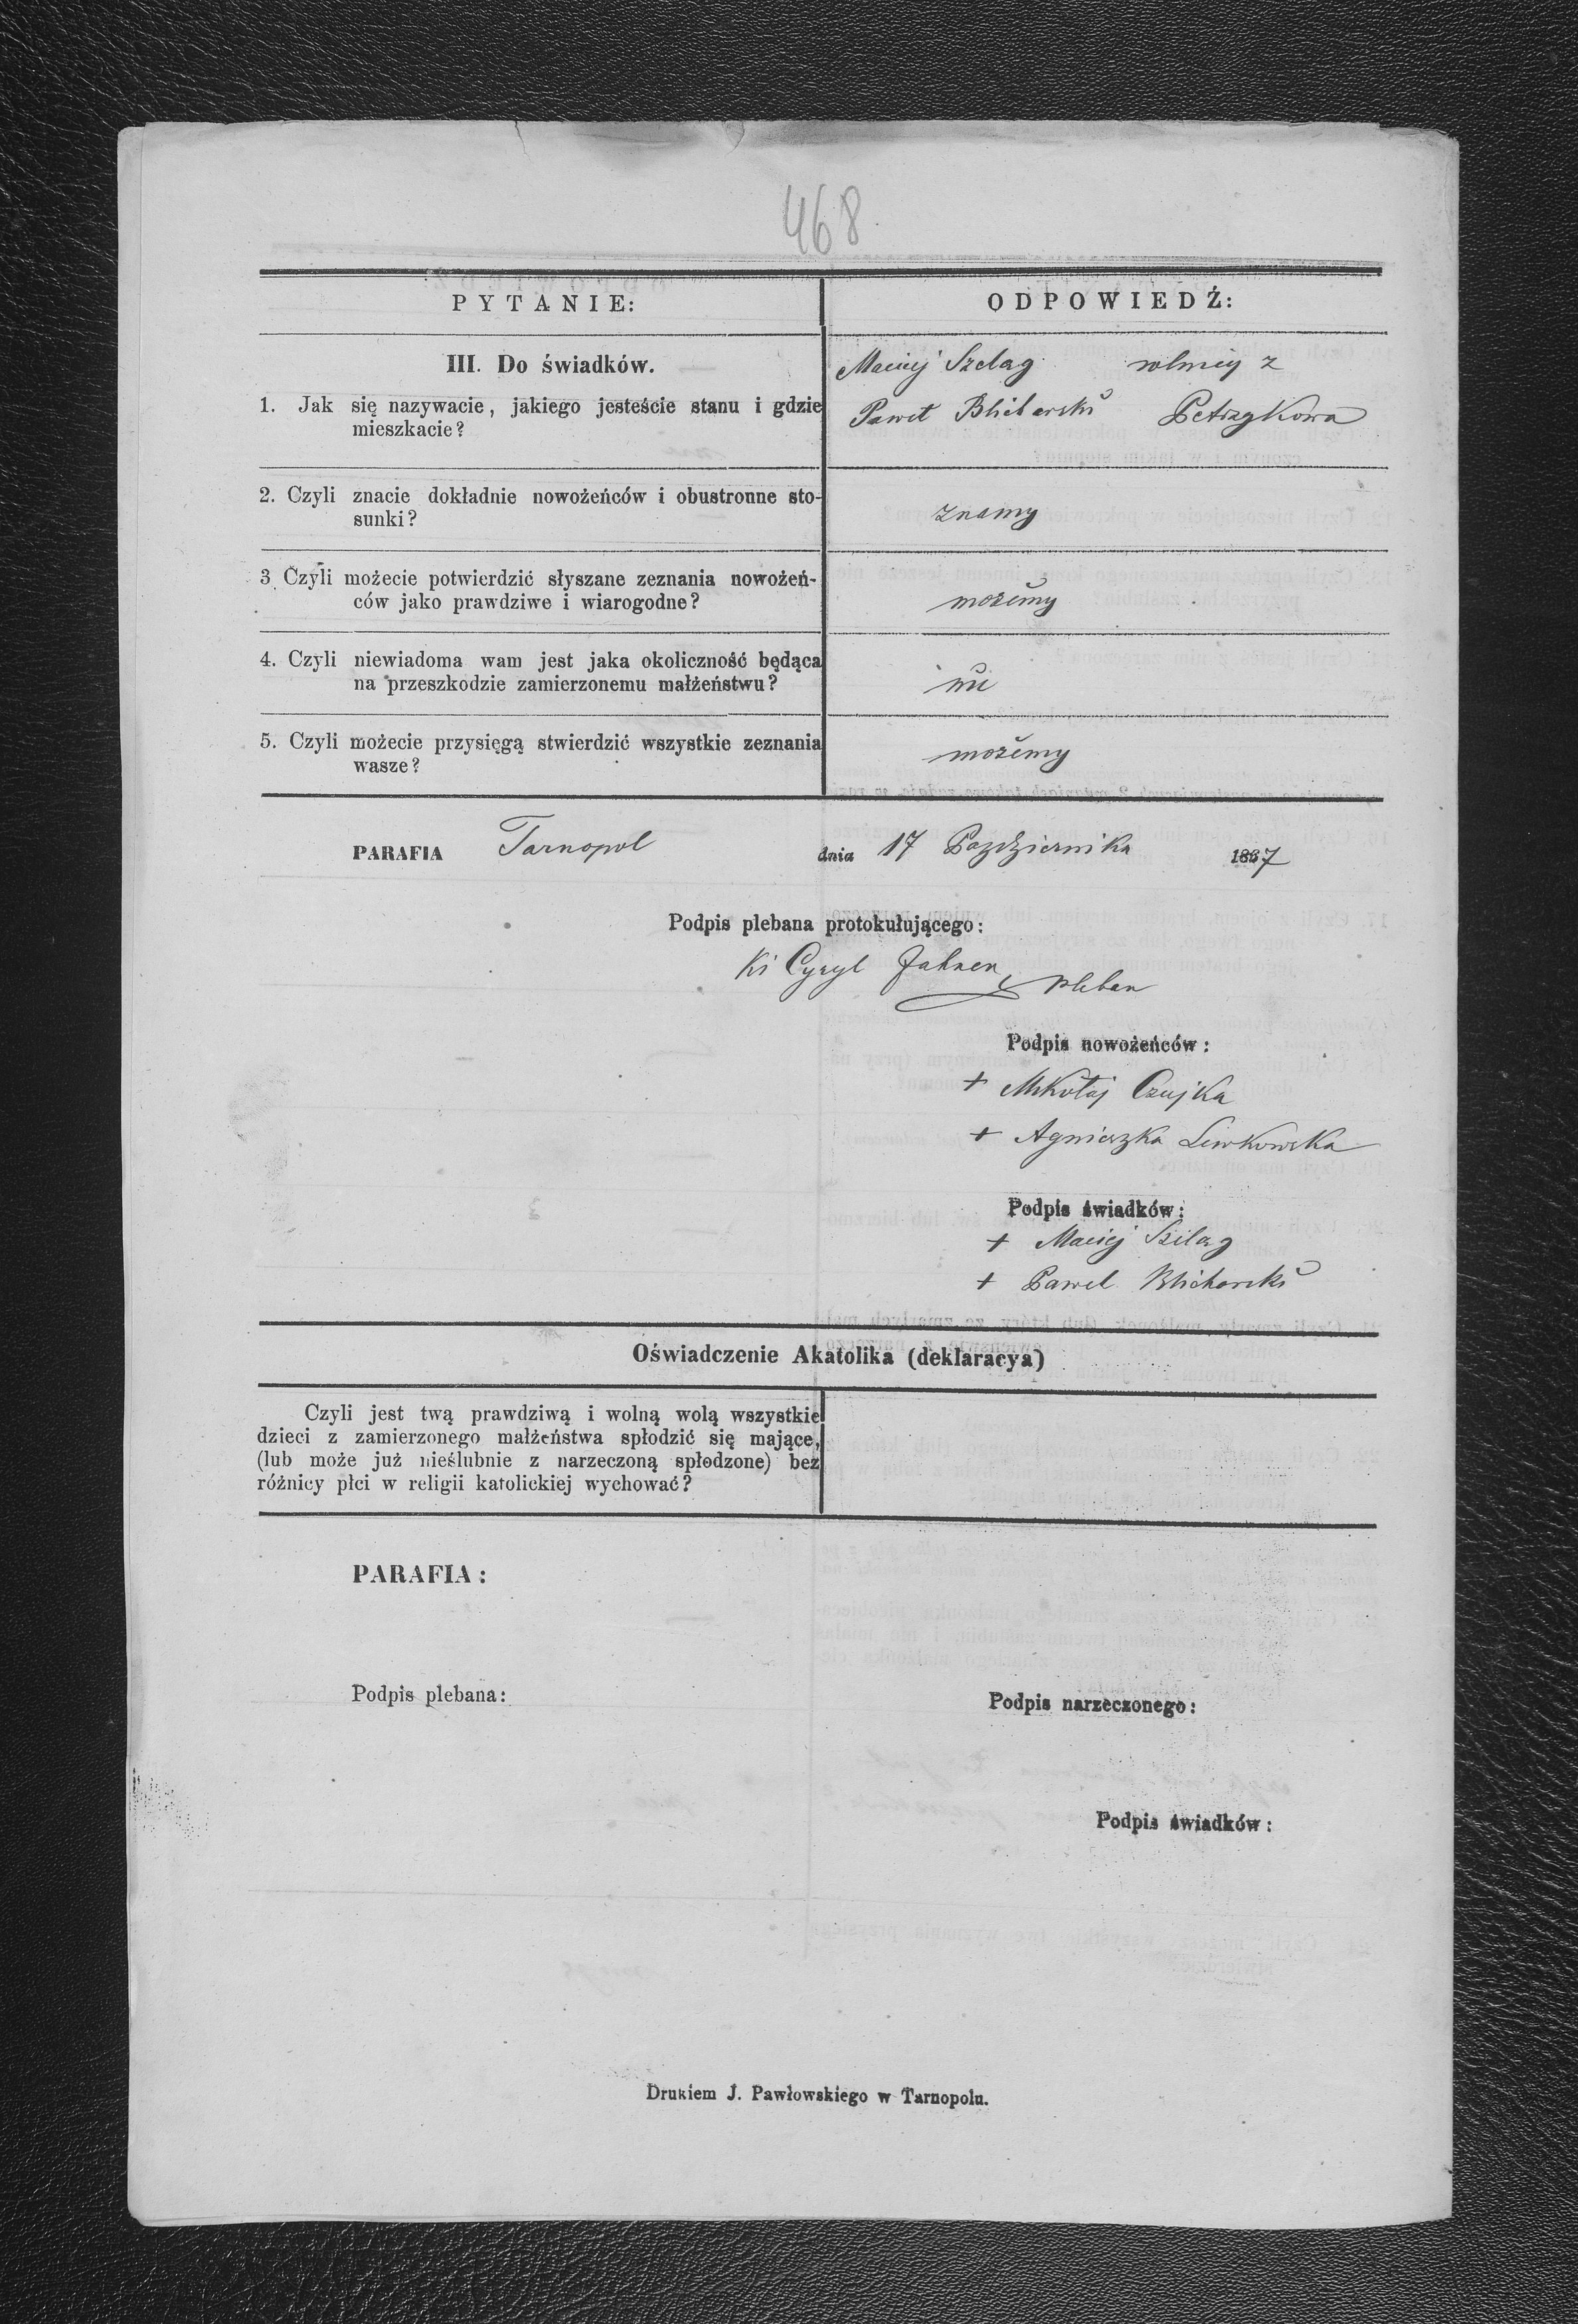 468
PYTANIE:
ODPOWIEDŹ:
III. Do świadków.
1. Jak się nazywacie, jakiego jesteście stanu i gdzie
mieszkacie?
Maciej Szeląg rolnicy z
Paweł Blicharski Petrzykowa
2. Czyli znacie dokładnie nowożeńców i obustronne sto-
sunki?
znamy
3. Czyli możecie potwierdzić słyszane zeznania nowożeń-
ców jako prawdziwe i wiarogodne?
możemy
4. Czyli niewiadoma wam jest jaka okoliczność będąca
na przeszkodzie zamierzonemu małżeństwu?
nie
5. Czyli możecie przysięgą stwierdzić wszystkie zeznania
wasze?
możemy
PARAFIA Tarnopol dnia 17 Października 1887
Podpis plebana protokułującego:
Cyryl pleban
Podpis nowożeńców:
+ Mikołaj Czujka
+ Agnieszka Lewkowska
Podpis świadków:
+ Maciej Szeląg
+ Paweł Blicharski
Oświadczenie Akatolika (deklaracya)
Czyli jest twą prawdziwą i wolną wolą wszystkie
dzieci z zamierzonego małżeństwa spłodzić się mające,
(lub może już nieślubnie z narzeczoną spłodzone) bez
różnicy płci w religii katolickiej wychować?
PARAFIA:
Podpis plebana:
Podpis narzeczonego:
Podpis świadków:
Drukiem J. Pawłowskiego w Tarnopolu.